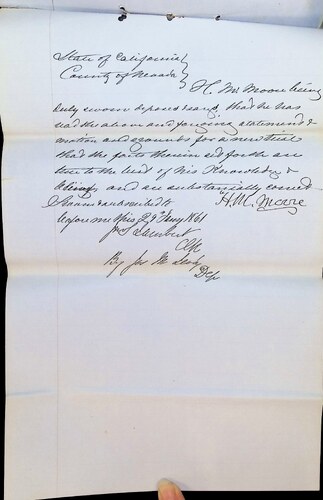 State of California }
County of Nevada }
H. M. Moore being
duly sworn deposes & says that he has
read the above and foregoing statement &
motion and grounds for a new trial
that the facts therein set forth are
true to the best of his Knowledge &
belief and are substantially correct
Sworn and subscribed to H. M. Moore
before me this 29th 1861
Clk
By Jno
Dep